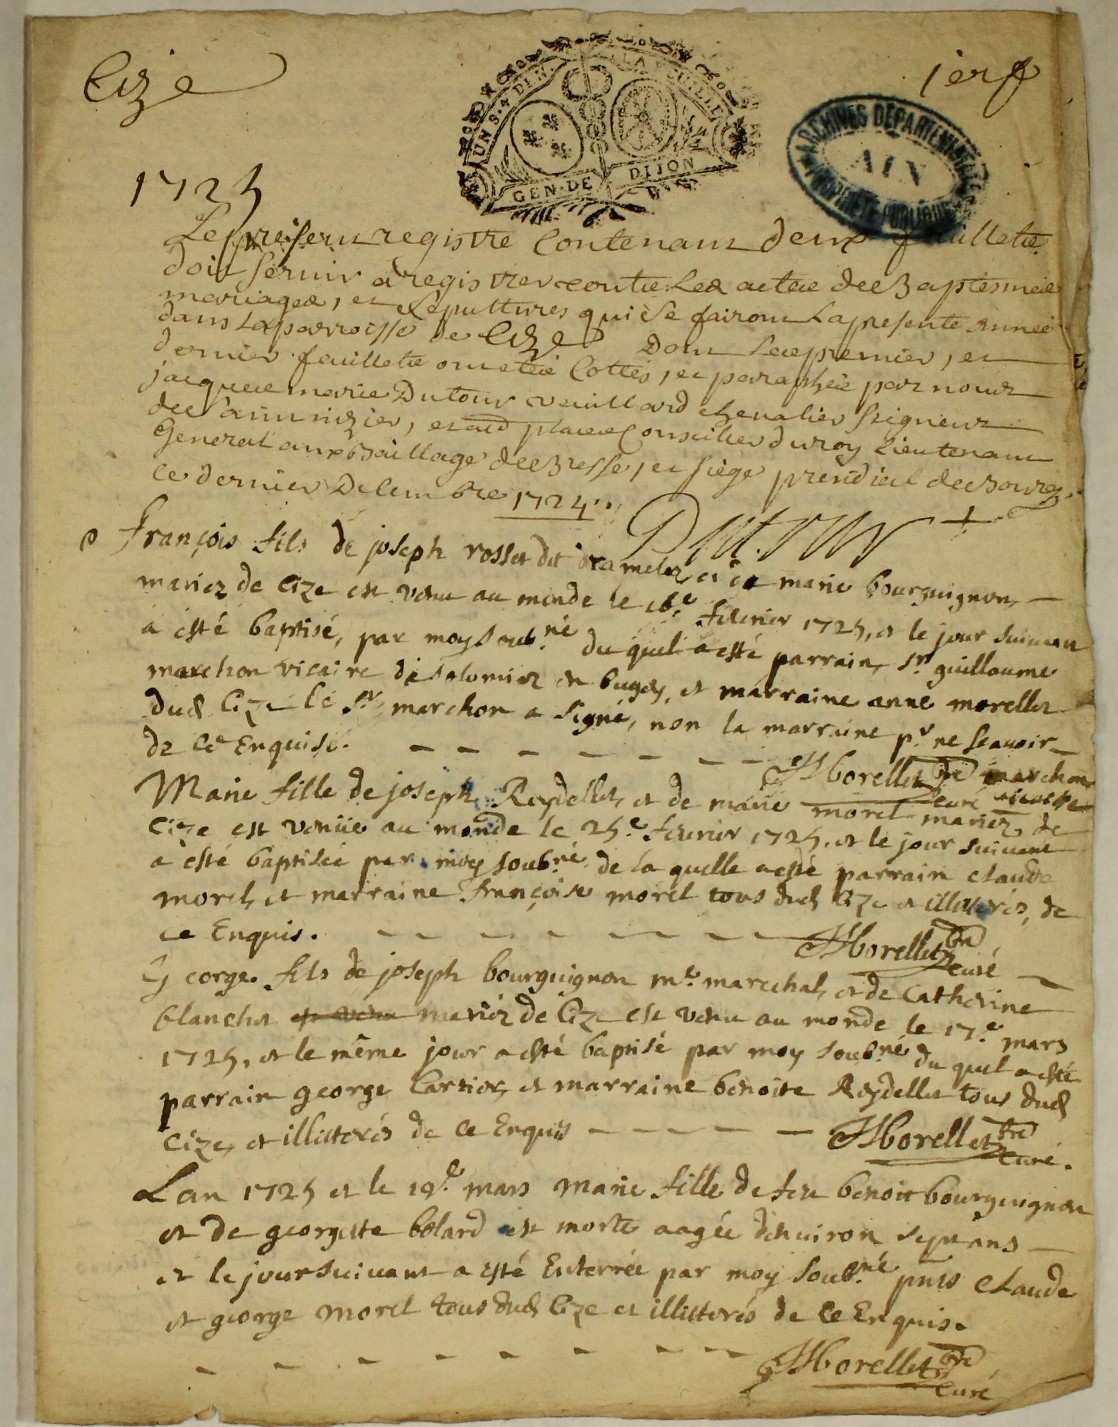 Cize
1er f
UN S. 4 DEN. LA FEUILLE
GEN. DE DIJON
ARCHIVES DÉPARTEMENTALES
AIN
PROPRIÉTÉ PUBLIQUE
1725
Le present registre Contenant deux feuillets
doit servir a registrer toutes Les actes de Baptesmes
mariages, et Sepultures qui Se fairont La presente Année
dans La parroisse de Cize Dont Les premier, et
dernier feuillets ont esté Cottés, et paraphés par nous
jacques marie Dutour vuillard chevalier Seigneur
de Saint nizier, et aud places Conseiller du roy Lieutenant
General au Baillage de Bresse, et siege presidial de Bourg
ce dernier Decembre 1724.
Dutour
François fils de joseph rosset dit et de marie bourguignon
mariez de Cize est venu au monde le 16e feuvrier 1725, et le jour suivant
a esté baptisé, par moy soubné du quel a esté parrain, sr guillaume
marchon vicaire de solomiat en bugey, et marraine anne morellet
dud Cize le sr marchon a signé, non la marraine pr ne scavoir
de ce Enquise.
Morellet pre Curé marchon vicaire
Marie fille de joseph Reydellet, et de marie morel mariez de
Cize est venüe au monde le 25e feuvrier 1725, et le jour suivant
a esté baptisée par moy soubné de la quelle a esté parrain claude
morel, et marraine Françoise morel tous dud Cize et illiterés, de
ce Enquis.
Morellet pre curé
George fils de joseph bourguignon me marechal, et de Catherine
blanchet est venu mariéz de Cize est venu au monde le 17e mars
1725, et le même jour a esté baptisé par moy soubné du quel a esté
parrain george Carrier, et marraine benoite Reydellet tous dud
Cize, et illitterés de ce Enquis
Morellet pre Curé.
Lan 1725 et le 19e mars marie fille de feu benoit bourguignon
et de georgette bolard est morte aagée denviron sept ans
et le jour suivant a esté Enterrée par moy soubné pnts claude
et george morel tous dud Cize et illitterés de ce Enquis.
Morellet pre Curé